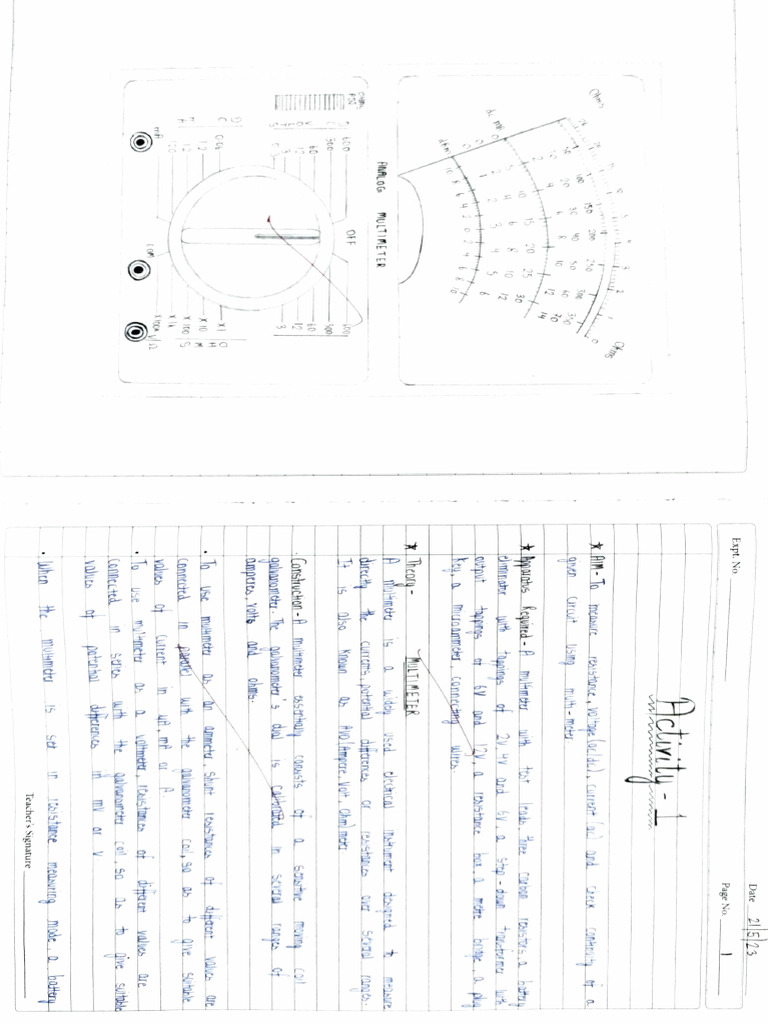 Expt. No.
Date 21/5/23
Page No. 1
Activity - 1
* AIM - To measure resistance, voltage (ac/dc), current (ac) and check continuity of a
given circuit using multi-meter
* Apparatus Required - A multimeter with test leads, three carbon resistors, a battery
eliminator with tappings of 2V, 4V and 6V, a step-down transformer with
output tappings of 6V and 12V, a resistance box, a metre bridge, a plug
key, a microammeter, connecting wires.
MULTIMETER
* Theory -
A multimeter is a widely used electrical instrument designed to measure
directly the current, potential differences or resistances over several ranges.
It is also known as AVO (Ampere, Volt, Ohm) meter
· Construction - A multimeter essentially consists of a sensitive moving coil
galvanometer. The galvanometer's dial is calibrated in several ranges of
amperes, volts and ohms.
· To use multimeter as an ammeter, shunt resistances of different values are
connected in parallel with the galvanometer coil, so as to give suitable
values of current in μA, mA or A
· To use multimeter as a voltmeter, resistances of different values are
connected in series with the galvanometer coil, so as to give suitable
values of potential differences in mV or V
· When the multimeter is set in resistance measuring mode, a battery
Teacher's Signature
Ohms
Ohms
ANALOG MULTIMETER
OFF
600
300
60
12
3
D C
0.06
1.2
12
120
mA
COM
V/Ω
O H M S
X 1
X 10
X 100
X 1k